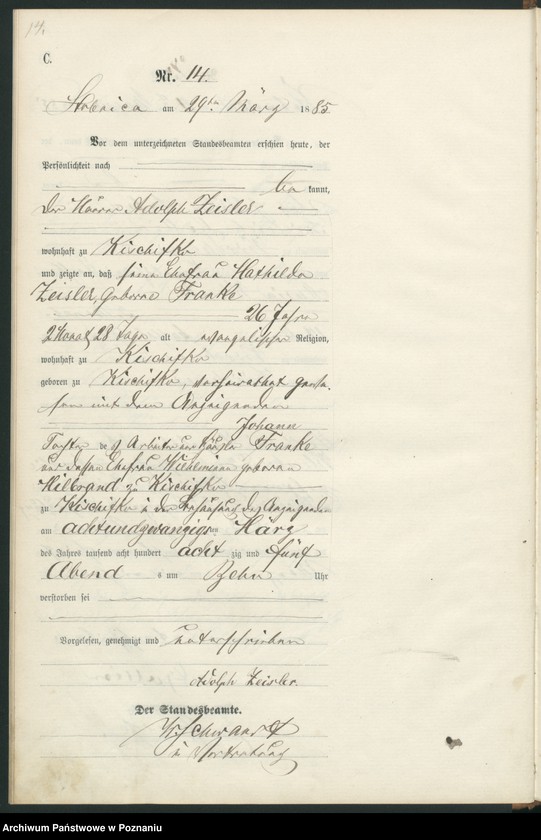 14.
C.
Nr. 14.
am 29ten März 1885
Vor dem unterzeichneten Standesbeamten erschien heute, der
Persönlichkeit nach
be kannt,
der Adolph Zeisler
wohnhaft zu Kischifko
und zeigte an, daß seine Ehefrau Mathilde
Zeisler, geborne Franke
26 Jahre
2 Monat 28 Tage alt evangelischer Religion,
wohnhaft zu Kischifko
geboren zu Kischifko, verheirathet gewe-
sen mit dem Anzeigenden
Johann
Tochter des Arbeiter Franke
und dessen Ehefrau Wilhelmine geborene
Hilbrand zu Kischifko
zu Kischifko in der Behausung des Anzeigenden
am achtundzwanzigsten März
des Jahres tausend acht hundert acht zig und fünf
Abend s um Zehn Uhr
verstorben sei
Vorgelesen, genehmigt und unterschrieben
Adolph Zeisler.
Der Standesbeamte.
in Vertretung
Archiwum Państwowe w Poznaniu